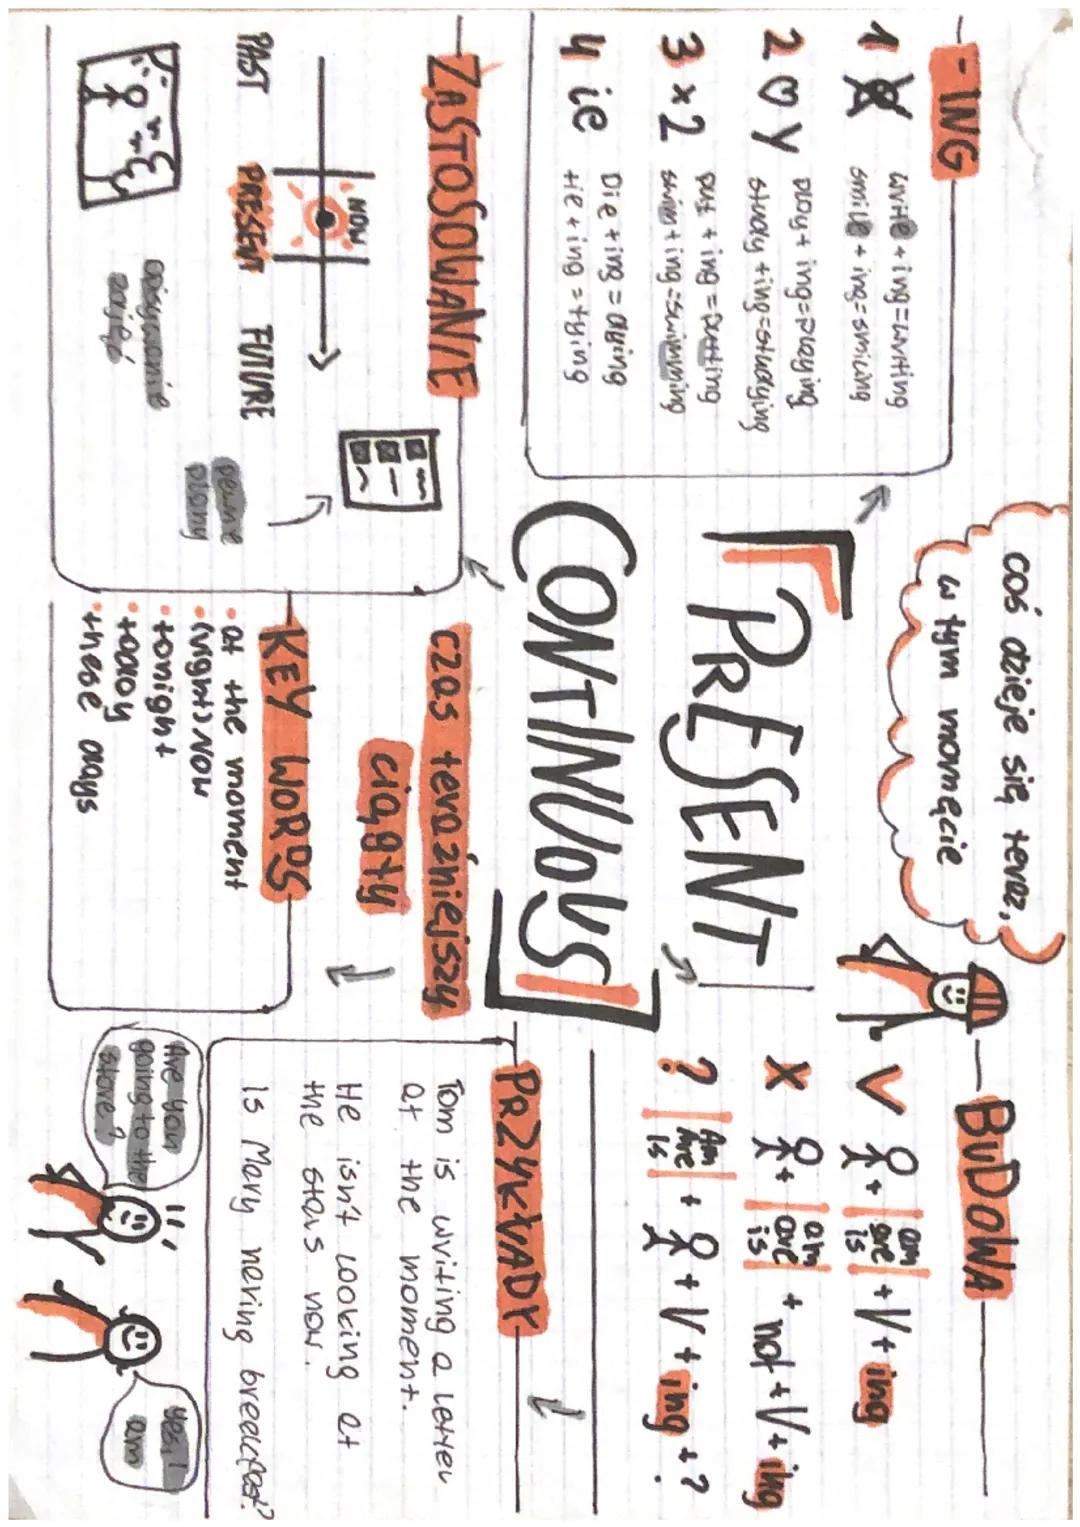 -ING
1
write + ing = writing
smile + ing = smiling
2 y
play + ing = playing
study + ing = studying
3 x2
put + ing = putting
swim + ing = swimming
4 ie
Die + ing = dying
tie + ing = tying
coś dzieje się teraz,
w tym momęcie
PRESENT
CONTINUOUS
czas teraźniejszy
ciągły
BUDOWA
V + am are is + V + ing
X + am are is + not + V + ing
? Am Are Is + + V + ing + ?
ZASTOSOWANIE
NOW
PAST PRESENT FUTURE
opisywanie
zdjęć
pewne
plany
KEY WORDS
• at the moment
• (right) NOW
• tonight
• today
• these days
PRZYKŁADY
Tom is writing a letter
at the moment.
He isn't looking at
the stars now.
Is Mary having breackfast?
Are you
going to the
store?
yes, I
am